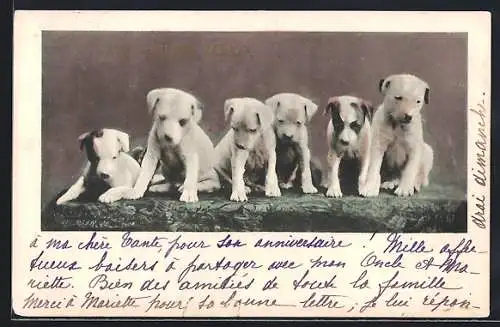 à ma chère Tante pour son anniversaire ! Mille affec-
tueux baisers à partager avec mon Oncle et Ma-
riette. Bien des amitiés de toute la famille
Merci à Mariette pour sa bonne lettre; je lui répon-
drai dimanche.